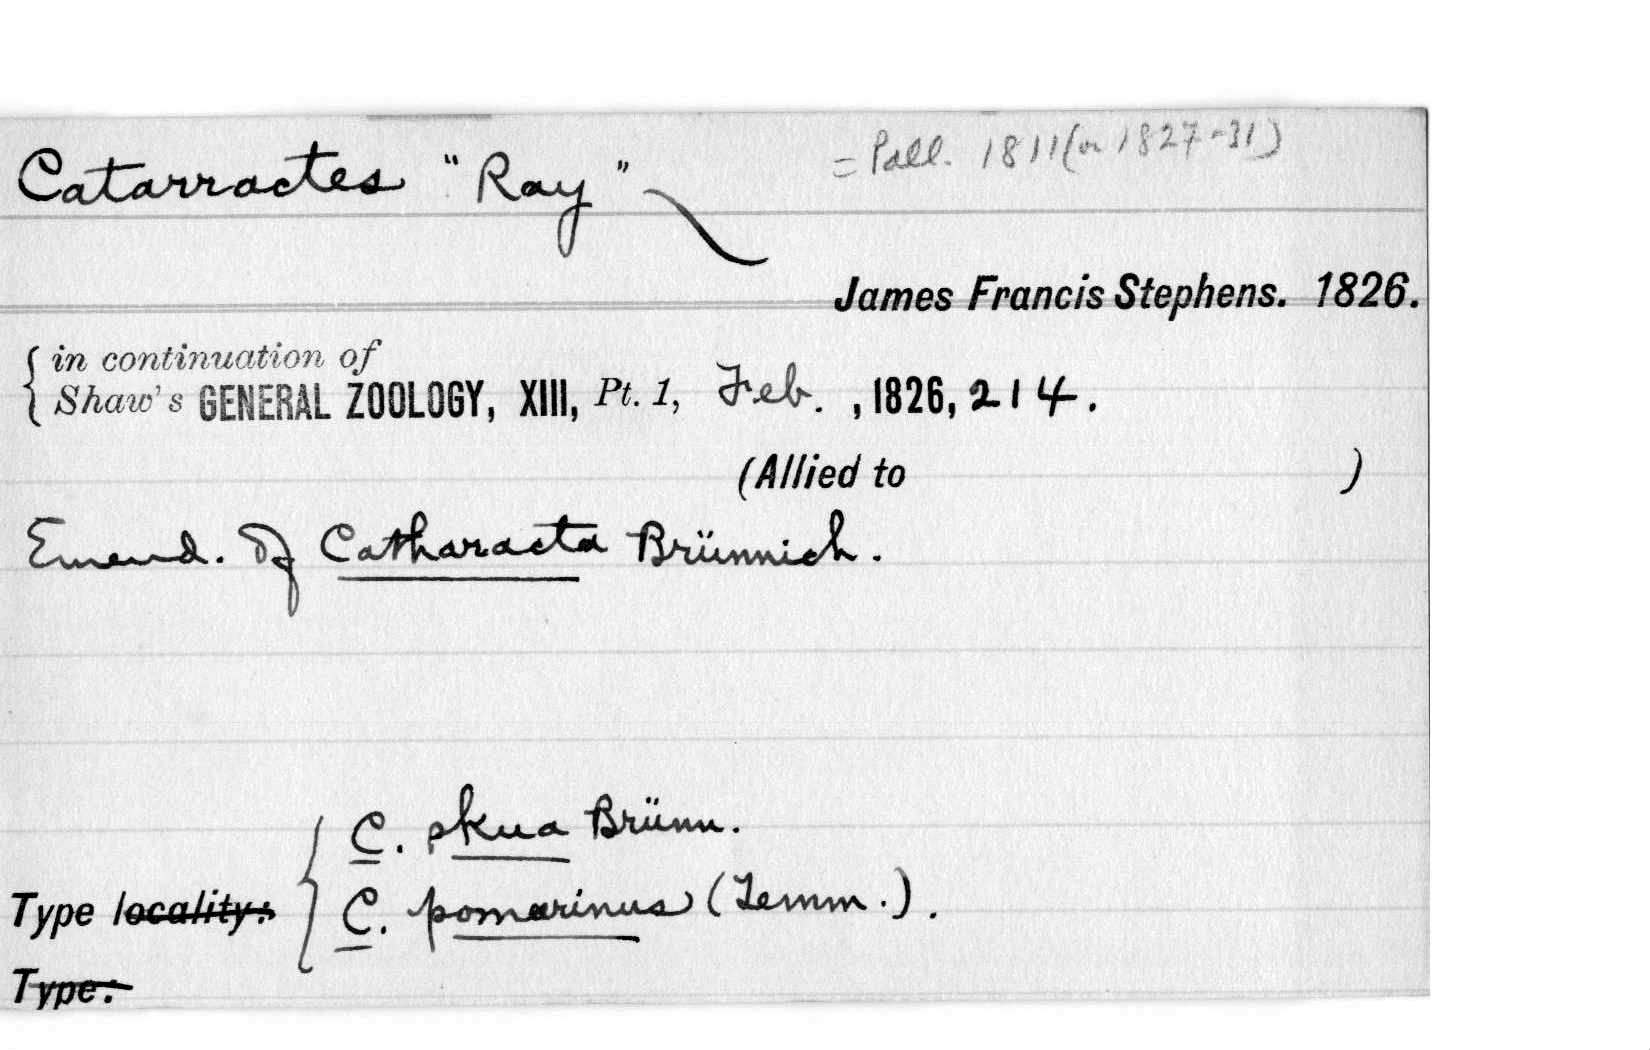 Catarractes "Ray"
= Pall. 1811 (or 1827-31)
James Francis Stephens. 1826.
in continuation of
Shaw's GENERAL ZOOLOGY, XIII, Pt. 1, Feb. , 1826, 214.
(Allied to )
Emend. of Catharacta Brünnich.
C. skua Brünn.
Type locality: C. pomarinus (Temm.).
Type: